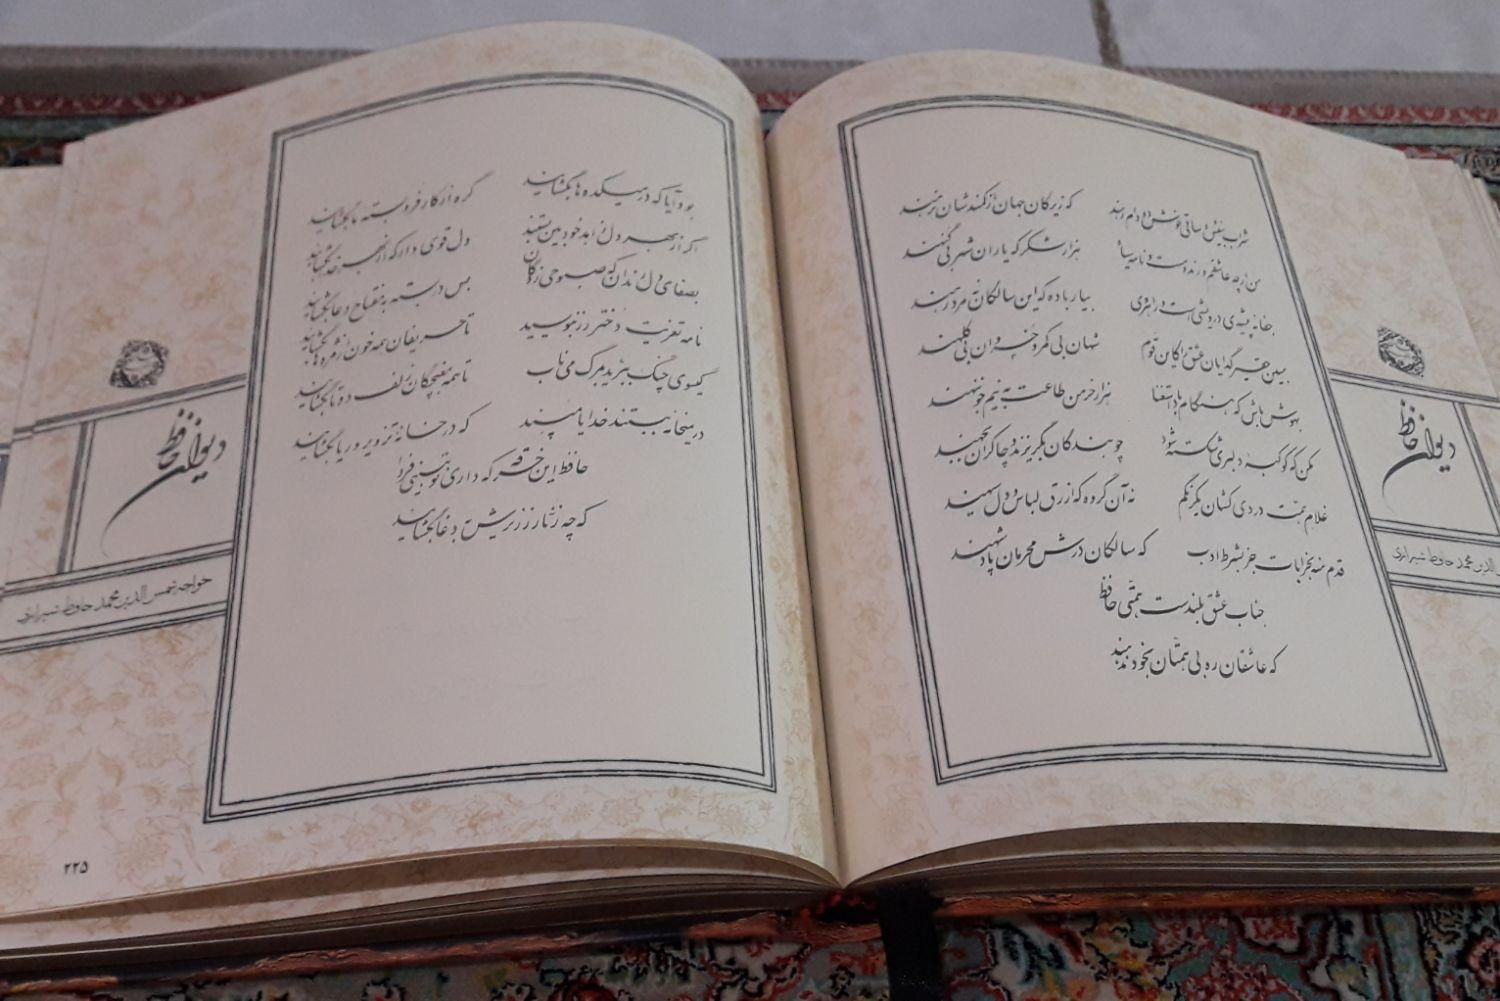 شراب بیغش و ساقی خوش دو دام رهند که زیرکان جهان از کمندشان نرهند
من ارچه عاشقم و رند و مست و نامه سیاه هزار شکر که یاران شهر بی گنهند
جفا نه پیشه‌ی درویشی است و راهروی بیار باده که این سالکان نه مرد رهند
مبین حقیر گدایان عشق را کاین قوم شهان بی کمر و خسروان بی کلهند
بهوش باش که هنگام باد استغنا هزار خرمن طاعت به نیم جو ننهند
مکن که کوکبهٔ دلبری شکسته شود چو بندگان بگریزند و چاکران بجهند
غلام همّت دردی کشان یکرنگم نه آن گروه که ازرق لباس و دل سیهند
قدم منه بخرابات جز بشرط ادب که سالکان درش محرمان پادشهند
جناب عشق بلندست همّتی حافظ
که عاشقان ره بی همّتان بخود ندهند
دیوان حافظ
بود آیا که در میکده ها بگشایند گره از کار فروبسته ما بگشایند
اگر از بهر دل زاهد خودبین بستند دل قوی دار که از بهر خدا بگشایند
بصفای دل رندان که صبوحی زدگان بس در بسته به مفتاح دعا بگشایند
نامه تعزیت دختر رز بنویسید تا حریفان همه خون از مژه ها بگشایند
گیسوی چنگ ببرید بمرگ می ناب تا همه مغبچگان زلف دوتا بگشایند
در میخانه ببستند خدایا مپسند که در خانهٔ تزویر و ریا بگشایند
حافظ این خرقه که داری تو ببینی فردا
که چه زنّار ز زیرش بدغا بگشایند
دیوان حافظ
خواجه شمس الدین محمد حافظ شیرازی
۲۲۵